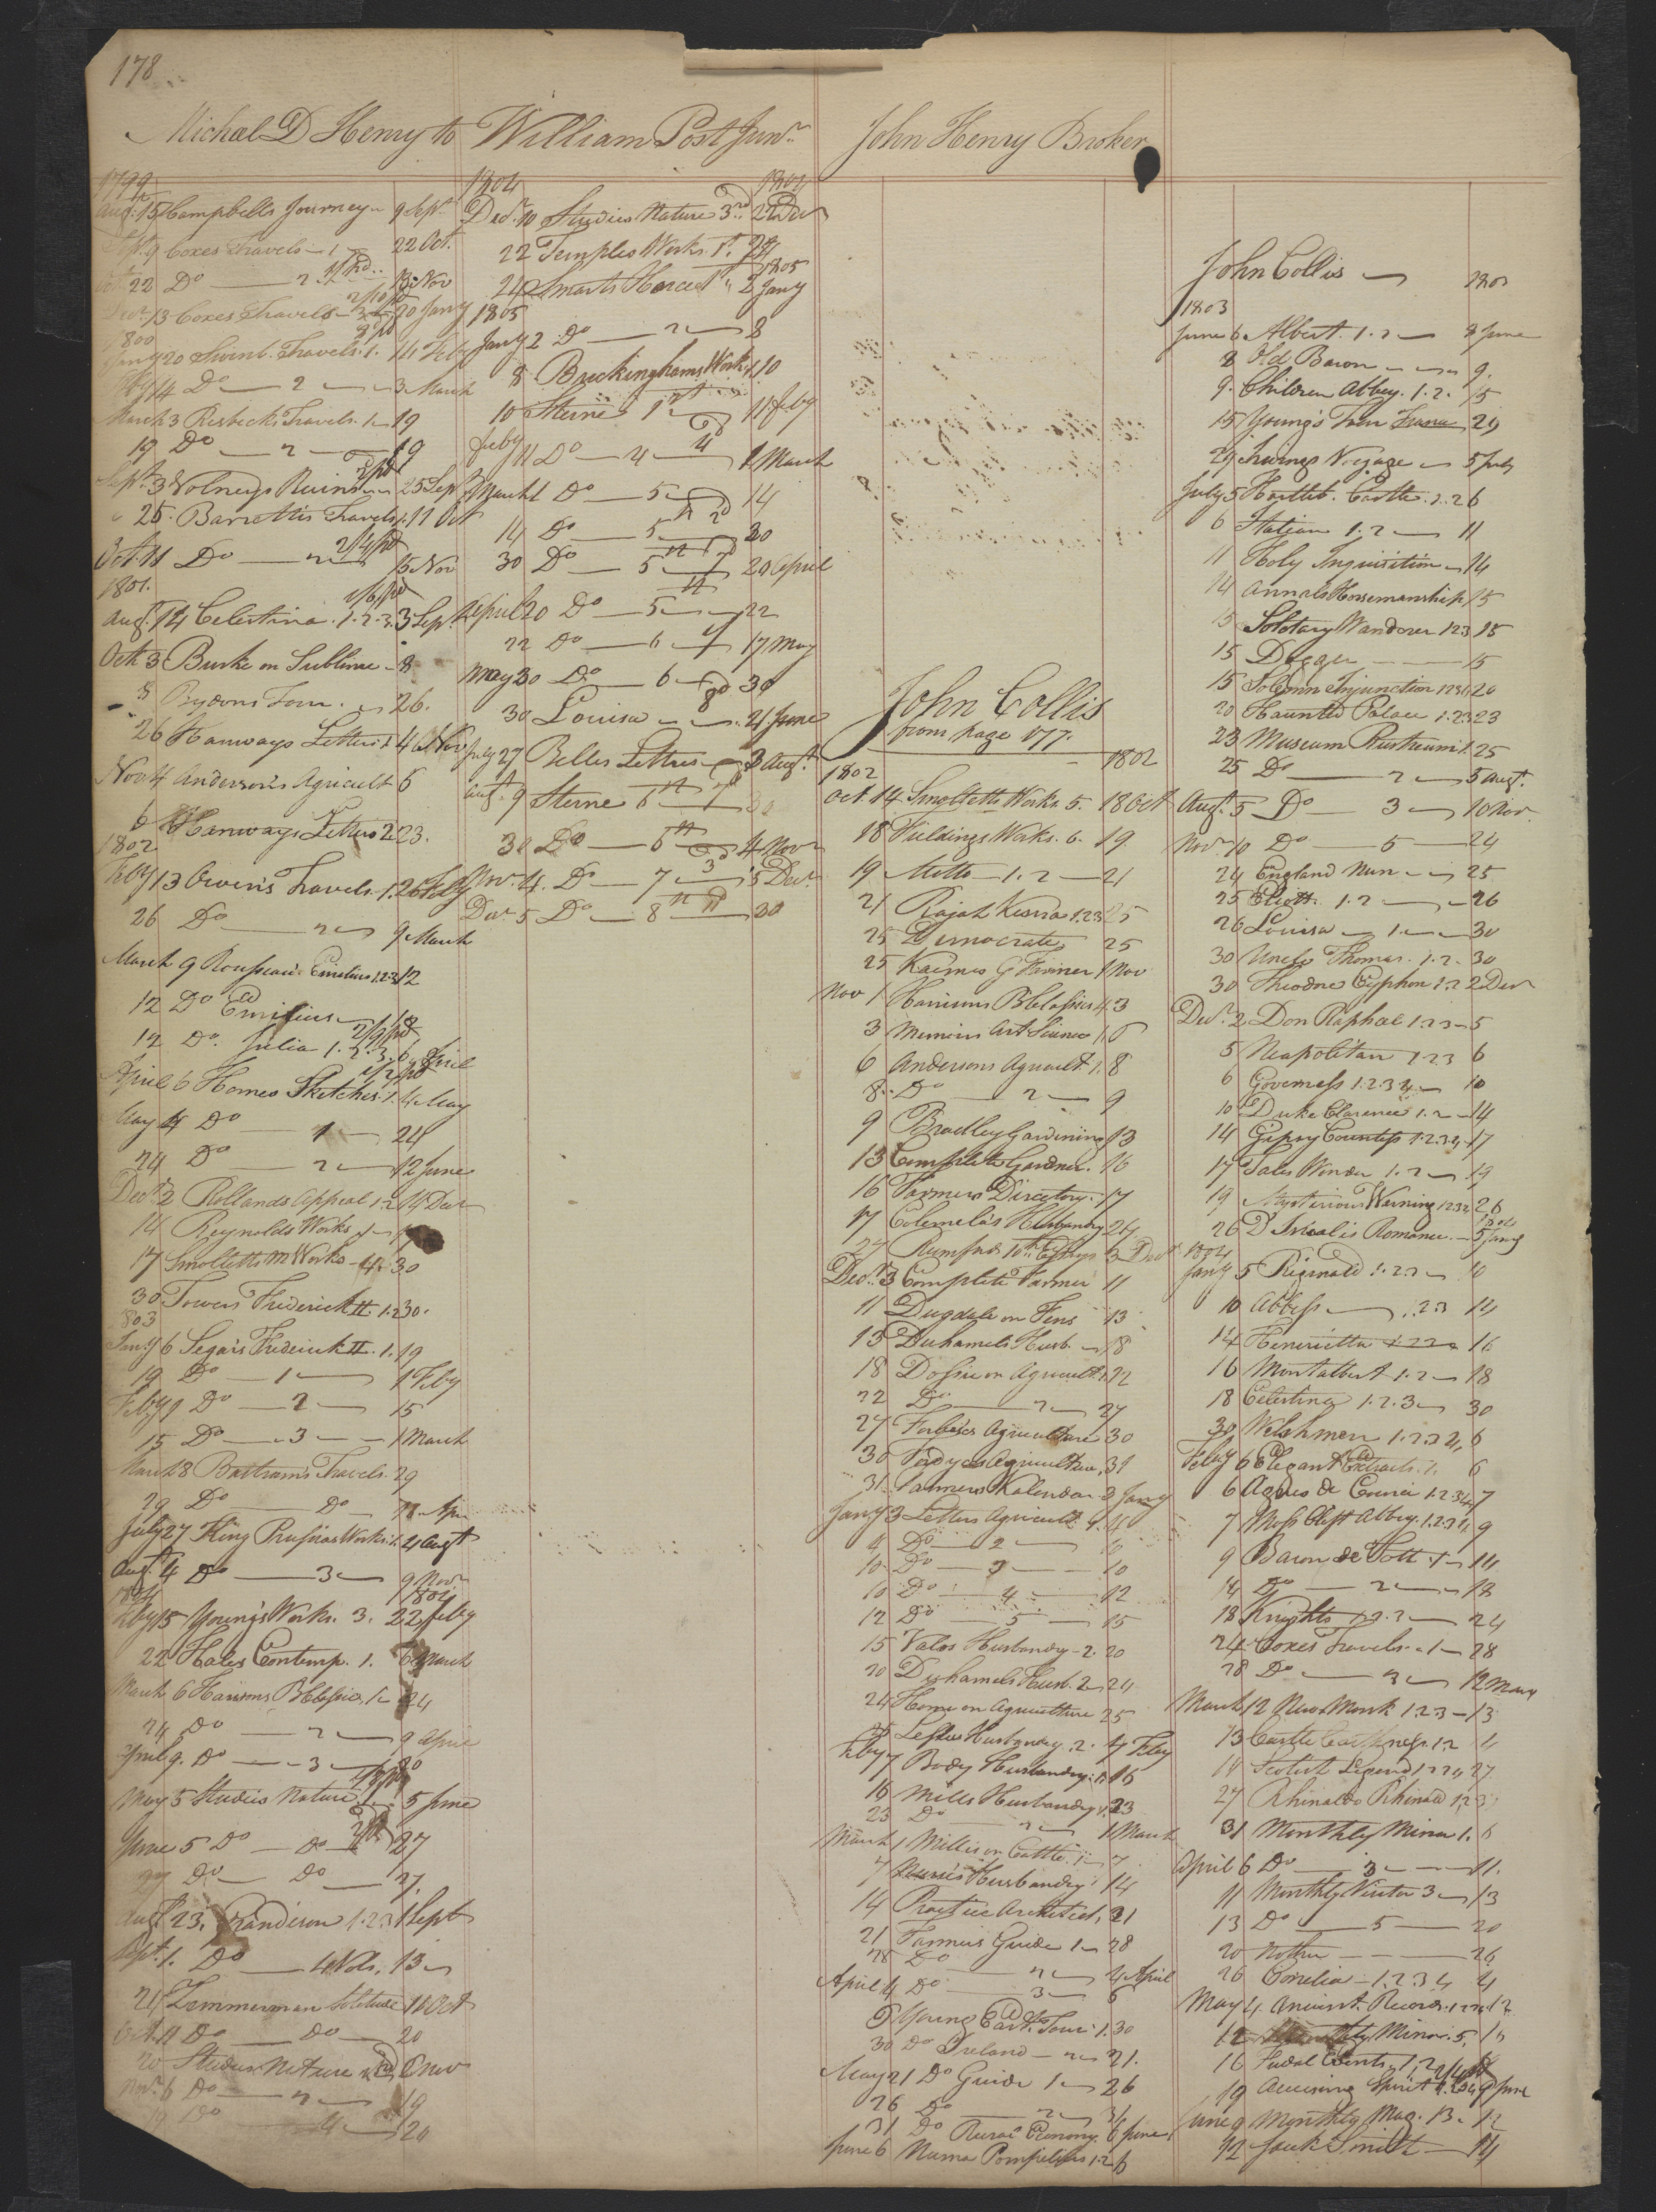 178
Michael D Henry to William Post Junr
John Henry Broker
1799
Augt 15 Campbells Journey 9 Sept
Sept 9 Coxes Travels 1 22 Oct.
Oct 22 Do 2 13 Nov
Decr 13 Coxes Travels 3 20 Jany
1800
Jany 20 Swinb. Travels. 1. 14 Feby
Feby 14 Do 2 3 March
March 3 Risbecks Travels. 1 19
19 Do 2 19
Sept 3 Volneys Ruins 25 Sept
25 Barrettis Travels 1. 11 Oct
Oct. 11 Do 2 15 Nov
1801.
Augt. 14 Celestina. 1.2.3. 3 Sept
Oct 3 Burke on Sublime 8
8 Brydons Tour. 26.
26 Hanways Letters 1 4 Nov
Nov 4 Anderson's Agricult 6
6 Hanways Letters 2 23.
1802
Feby 13 Owen's Travels 1. 26 Feby
26 Do 2 9 March
March 9 Rousseau's Emilius 1.2.3 12
12 Do Emilius
12 Do. Julia 1.2.3. 6 April
April 6 Homes Sketches 1. 4 May
May 4 Do 1 24
24 Do 2 12 June
Decr 2 Rollands Appeal 1.2 14 Decr
14 Reynolds Works 1 17
17 Smolletts M Works 4. 30
30 Towers Frederick II. 1.2 30.
1803
Jany 6 Segars Frederick II. 1. 19
19 Do 1 1 Feby
Feby 1 Do 2 15
15 Do 3 1 March
March 8 Bartrams Travels. 29
29 Do Do
July 27 King Prussias Works 1. 4 Augt
Augt. 4 Do 3 9 Novr
1804 1804
Feby 15 Young's Works. 3. 22 feby
22 Hales Contemp. 1. 6 March
March 6 Harrisons 1 24
24 Do 2 9 April
April 9. Do 3 20
May 5 Studies Nature 1 5 June
June 5 Do Do 27
27 Do Do 27.
Augt 23. Grandison 1.2.3 1 Sept
Sept. 1. Do 4 Vols. 13
21 Zimmerman Solitude 11 Oct
Oct. 11 Do Do 20
20 Studies Nature 6 Nov
Novr 6 Do 2 19
19 Do 4 20
1804 1804
Decr 10 Studies Nature 3rd 22 Decr
22 Temples Works. 1st. 24
1805
24 Smarts Horace 1st 2 Jany
1805
Jany 2 Do 2 8
8 Buckinghams Works 1 10
10 Sterne 1st 11 feby
feby 11 Do 4 1 March
March 1 Do 5 14
14 Do 5th 30
30 Do 5th 20 April
April 20 Do 5th 22
22 Do 6 17 May
May 30 Do 6 30
30 Louisa 21 June
July 27 Belles Lettres 3 Augt.
Augt. 9 Sterne 6th 30
30 Do 6th 4 Novr
Nov. 4. Do 7 5 Decr
Decr 5 Do 8th 30
John Collis
from page 177.
1802 1802
Oct. 14 Smolletts Works. 5. 18 Oct
18 Fieldings Works. 6. 19
19 Mitto 1.2 21
21 Rajah Kisna 1.2.3 25
25 Democrate 25
25 Kaimes G Farmer 1 Nov
Nov 1 Harrisons 4. 3
3 Memoirs Art Science 1. 6
6 Andersons Agricult 1. 8
8. Do 2 9
9 Bradley Gardening 13
13 Complete Gardner. 16
16 Farmers Directory. 17
17 Colemela's Husbandry 24
24 Rumfords 10th Essays 3 Decr
Decr. 3 Complete Farmer 11
11 Dugdale on Fens 13
13 Duhamels Husb. 18
18 Dossie on Agricult 1. 22
22 Do 2 27
27 Forbes's Agriculture 30
30 Fordyces Agriculture. 31
31. Farmers Kalendar 3 Jany
Jany 3 Letters Agricult. 1. 4
4 Do 2
10 Do 3 10
10 Do 4 12
12 Do 5 15
15 Valos Husbandry 2. 20
20 Duhamels Husb. 2 24
24 Home on Agriculture 25
25 Leslies Husbandry. 2. 7 Feby
Feby 7 Body Husbandry. 16
16 Mills Husbandry 1. 23
23 Do 2 1 March
March 1 Mills on Cattle. 1 7.
7 Husbandry 14
14 Practice Architect. 21
21 Farmers Guide 1 28
28 Do 2 4 April
April 4 Do 3 6
6 Young East. Tour 1. 30
30 Do Ireland 2 21.
May 21 Do Guide 1 26
26 Do 2 31
31 Do Rural Economy 6 June
June 6 Numa Pompilius 1.2 6
John Collis 1803
1803
June 6 Albert. 1.2 8 June
8 Old Baron 9.
9. Children Abbey. 1.2. 15
15 Young's Tour France 29
29 Irwings Voyage 5 July
July 5 Hartleb. Castle. 1.2 6
6 Italian 1.2 11
11 Holy Inquisition 14
14 Annals Horsemanship 15
15 Solotary Wanderer 1.2.3 15
15 15
15 Solemn Injunction 1.2.3.4 20
20 Haunted Palace 1.2.3 23
23 Museum Rusticum 1. 25
25 Do 2 5 Augt.
Augt. 5 Do 3 10 Nov.
Nov. 10 Do 5 24
24 England Nun 25
25 Eliott 1.2 26
26 Louisa 1. 30
30 Uncle Thomas. 1.2. 30
30 Theodore Cyphon 1.2 2 Decr
Decr. 2 Don Raphael 1.2.3 5
5 Neapolitan 1.2.3 6
6 Governess 1.2.3.4 10
10 Duke Clarence 1.2 14
14 Gipsy Countess 1.2.3.4 17
17 Tales Wonder 1.2 19
19 Mysterious Warning 1.2.3.4 26
1804
26 D'Isralis Romance. 5 Jany
1804
Jany 5 Reginald 1.2.3 10
10 Abbess 1.2.3 14
14 Henrietta 16
16 Montalbert 1.2 18
18 Celestina 1.2.3 30
30 Welshmen 1.2.3.4. 6
Feby 6 Elegant Extracts. 1. 6
6 Agnes de Courci 1.2.3.4 7
7 Moss Clift Abbey. 1.2.3.4. 9
9 Baron de Tott. 1 14
14 Do 2 18
18 Knights 1.2.3 24
24 Coxes Travels. 1 28
28 Do 2 12 Marc
March 12 New Monk 1.2.3 13
13 Castle Caithness. 1.2 14
14 Scotish Legend 1.2.3.4 27
27 Rhinaldo Rhinaldi 1.2.3
31 Monthly Mirror 1. 6
April 6 Do 3 11.
11 Monthly Visitor 3 13
13 Do 5 20
20 Mother 26
26 Cornelia 1.2.3.4 4
May 4 Ancient Records 1.2.3.4 12
12 Monthly Mirror. 5. 16
16 Fudal Events. 1.2
19 Accusing Spirit 9 June
June 9 Monthly Mag. 13. 12
12 Jack Smith 14